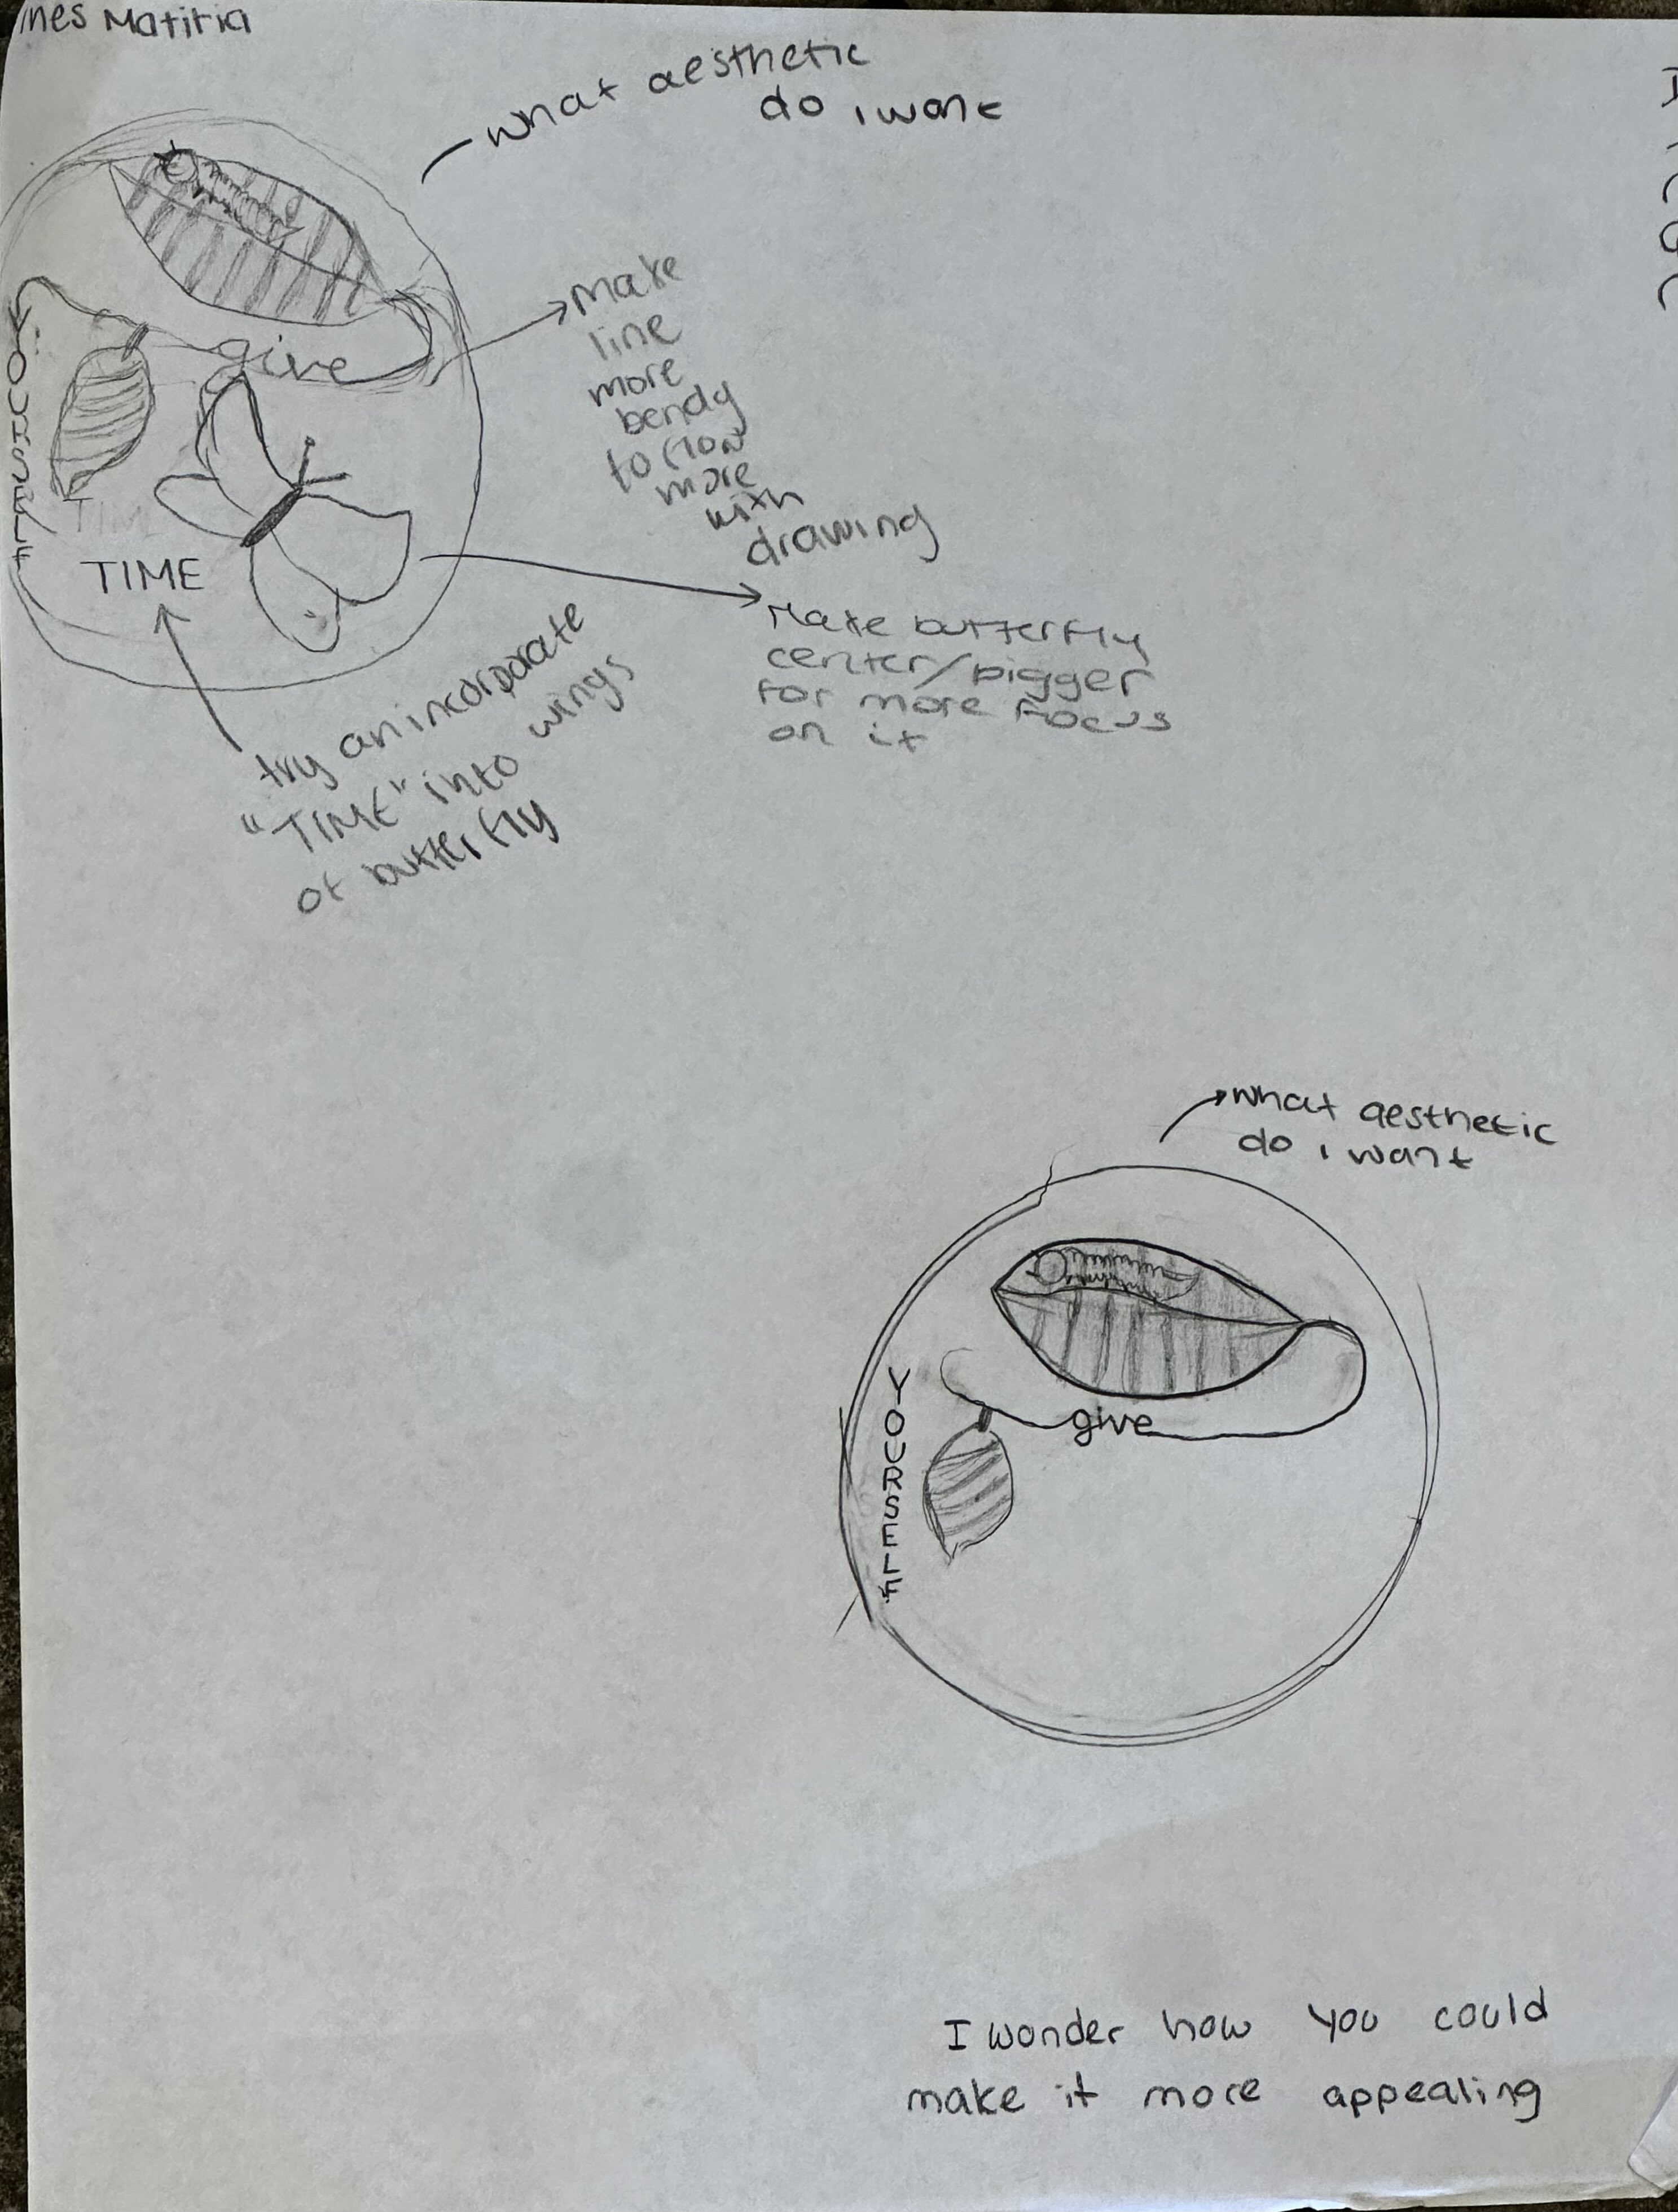 ines Matitia
what aesthetic
do i want
Make
line
more
bendy
to flow
more
with
drawing
give
YOURSELF
TIME
TIME
Make butterfly
center/bigger
for more focus
on it
try an incorporate
"TIME" into wings
of butterfly
what aesthetic
do i want
give
YOURSELF
I wonder how you could
make it more appealing